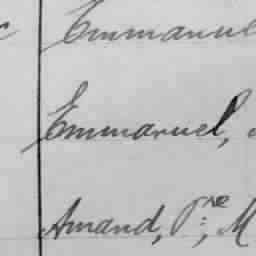 Emmanuel
Emmanuel,
Amand, Pre:, M